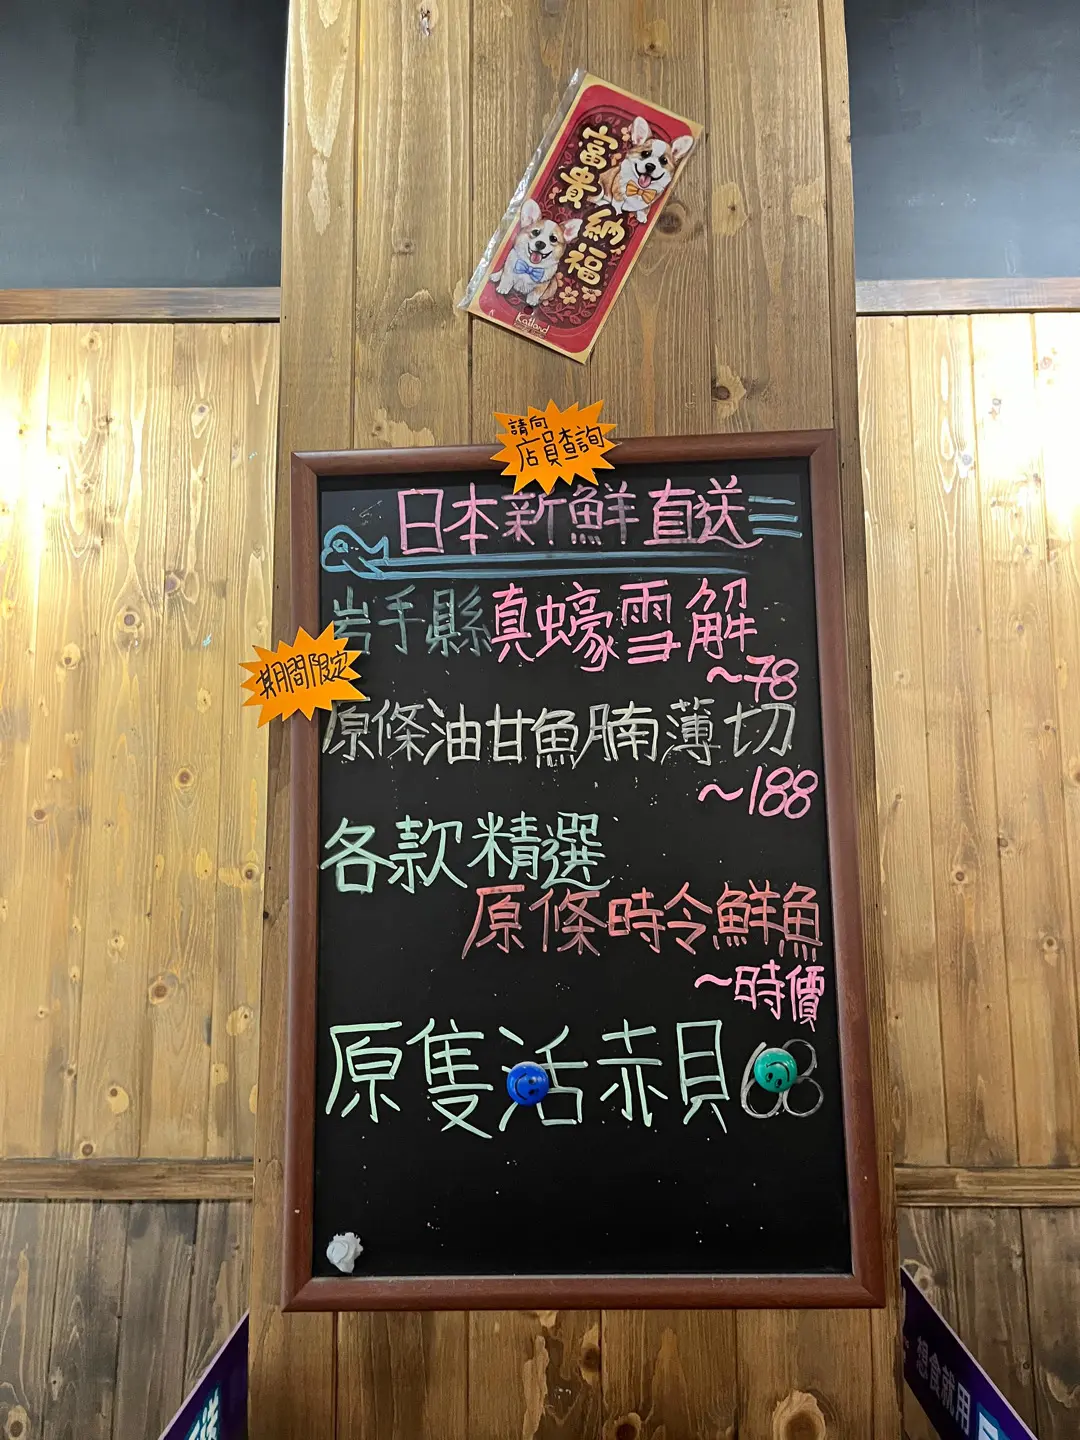 富貴
納福
Katland
請向
店員查詢
日本新鮮直送
岩手縣真蠔雪解
~78
期間限定
原條油甘魚腩薄切
~188
各款精選
原條時令鮮魚
~時價
原隻活赤貝68
想食就用